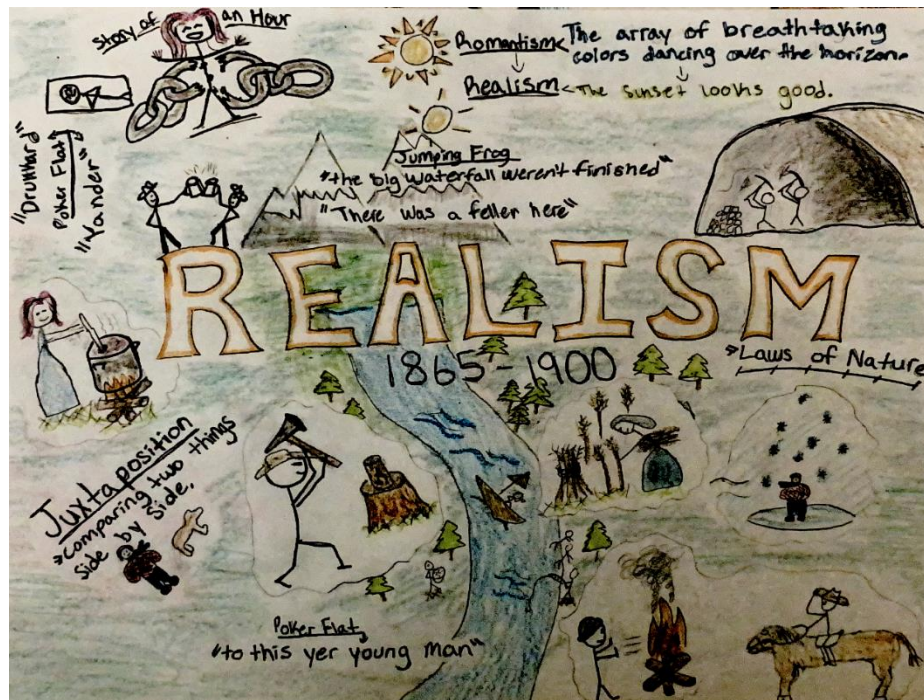 Story of an Hour
Romantism The array of breathtaking
colors dancing over the horizon.
Realism The sunset looks good.
"Drunkard"
Poker Flat
"Yander"
Jumping Frog
"the big waterfall weren't finished"
"There was a feller here"
REALISM
1865-1900
Laws of Nature
Juxtaposition
Comparing two things
side by side.
Poker Flat
"to this yer young man"